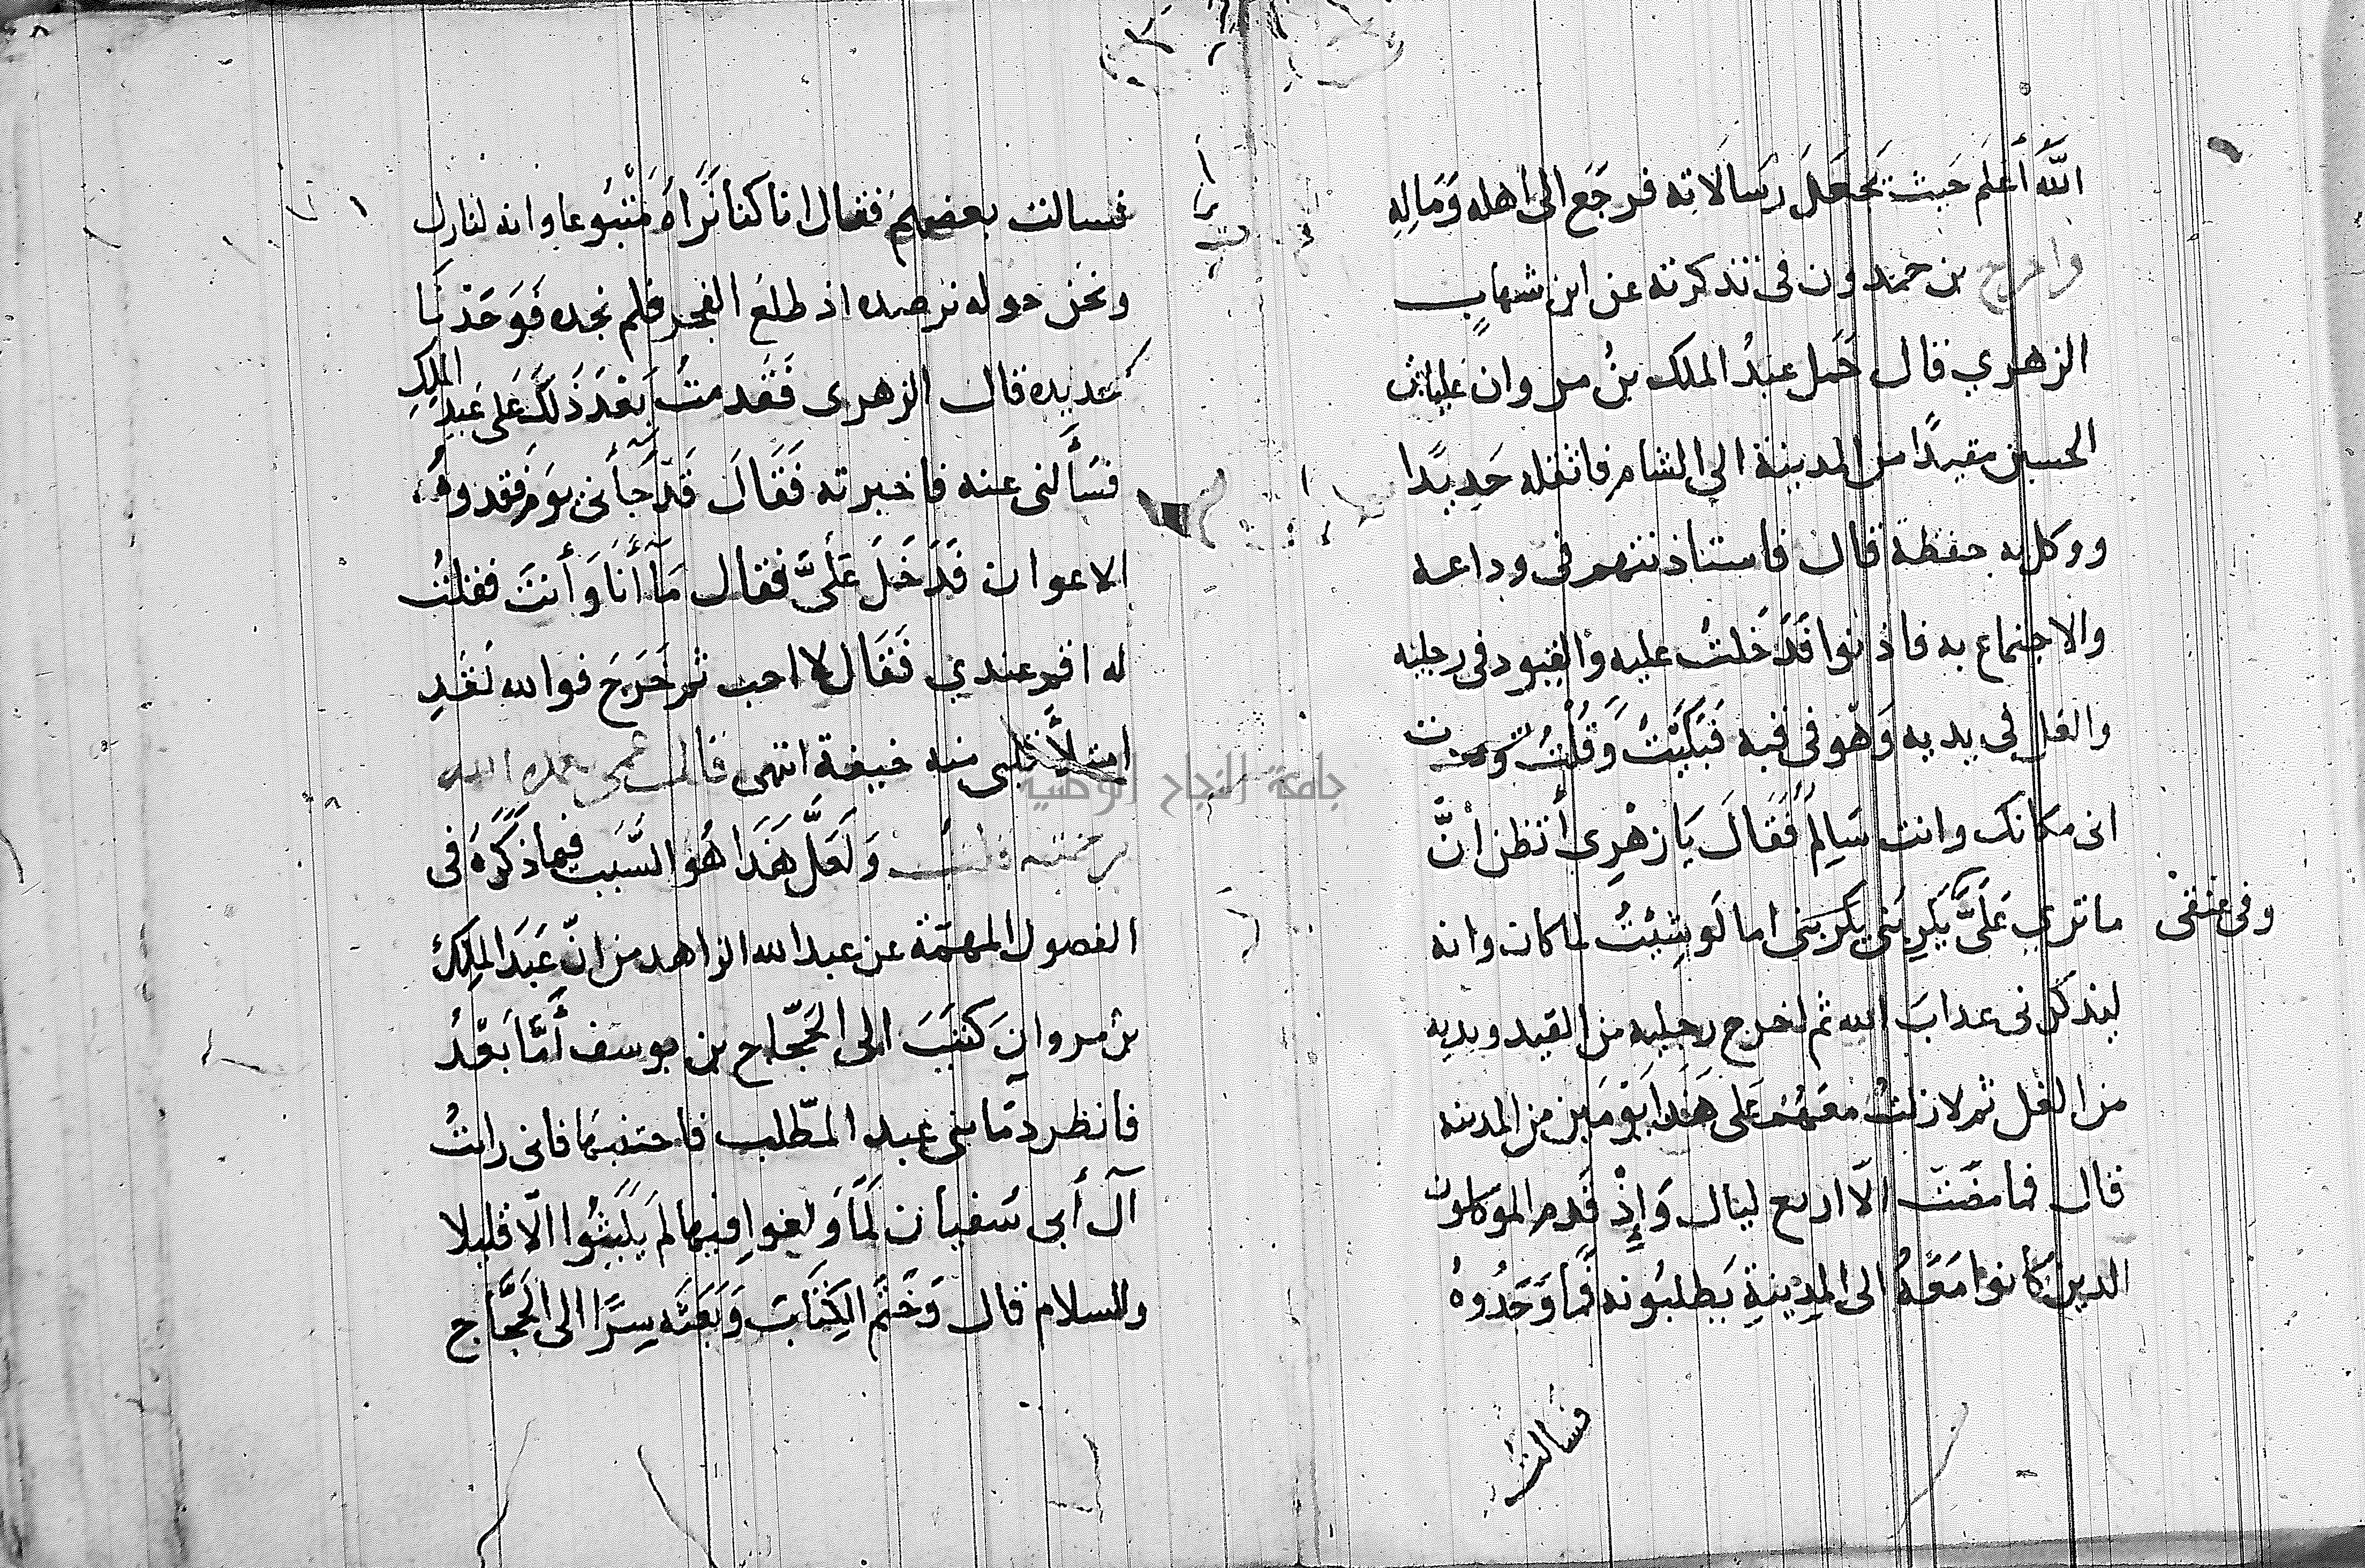 اللَّهُ أَعلَم حَيث يَجعَلَ رسَالَاته فرجَع الى اهله وَمَالِهِ
واخرج بن حمدون فى تذكرته عن ابن شهاب
الزهري قال حَمَل عَبدُ الملك بنُ مروان على بن
الحسين مقيدًا من المدينة الى الشام فاثقله حَدِيدًا
ووكل به حفظة قال فاستاذنتهم فى وداعه
والاجتماع به فاذنوا فَدَخَلتُ عليه والقيود فى رجليه
والغل في يديه وَهو فى قبه فَبَكَيْتُ وَقُلتُ وددت
انى مكانك وانت سَالِم فَقَالَ يَا زهْرِي أتظن انَّ
ما ترى عَلَىَّ يكربنى اما لَو شِئتُ لما كان وانه
وفى عنقى
ليذكرنى عذابَ الله ثم اخرج رجليه من القيد ويديه
من الغل ثم لا زلتُ معَهُم عَلى هَذَا يَومَين من المدينه
قال فما مضَت الّا اربع ليال وَإِذْ قَدم الموكلون
الذين كَانوا مَعَهُ الى المدِينةِ يَطلبُونه فَما وَجَدُوهُ
فسالت
فسالت بعضهم فقال انا كنا نَرَاهُ مَتْبُوعا وانه لنازل
ونحن حوله نرصده اذ طلع الفجر فلم نجده فَوَجَدْنَا
حديده قال الزهرى فَقَدمتُ بَعْدَ ذَلكَ عَلى عَبدِ الملِكِ
فسَأَلنى عنه فاخبرته فَقَالَ قَد جَأنى يوم فقدوهُ
الاعوان فَدَخَلَ عَلَىَّ فقال مَا أَنَا وَأَنتَ فقلتُ
له اقم عندي فَقَال لا احب ثم خَرَجَ فوالله لَقَدِ
امتلأ قلبى منه خيفة انتهى
وَلَعَلَّ هَذَا هُوَ السَّبَب فيما ذكَرَهُ فى
الفصول المهمّة عن عبد الله الزاهد من انّ عَبَدَ الملِكَ
بن مروان كَتَبَ الى الحَجّاج بن يوسَف أَمَّا بَعْدُ
فانظر دمَا بنى عبد المطّلب فاجتنبها فانى رايتُ
آل أبى سُفيان لَمَّا وَلغوا فيها لَم يَلبَثُوا الّا قليلا
والسلام قال وَخَتَم الكِتَابَ وَبَعَثَه سِرًّا الى الحَجَّاج
جامعة النجاح الوطنية